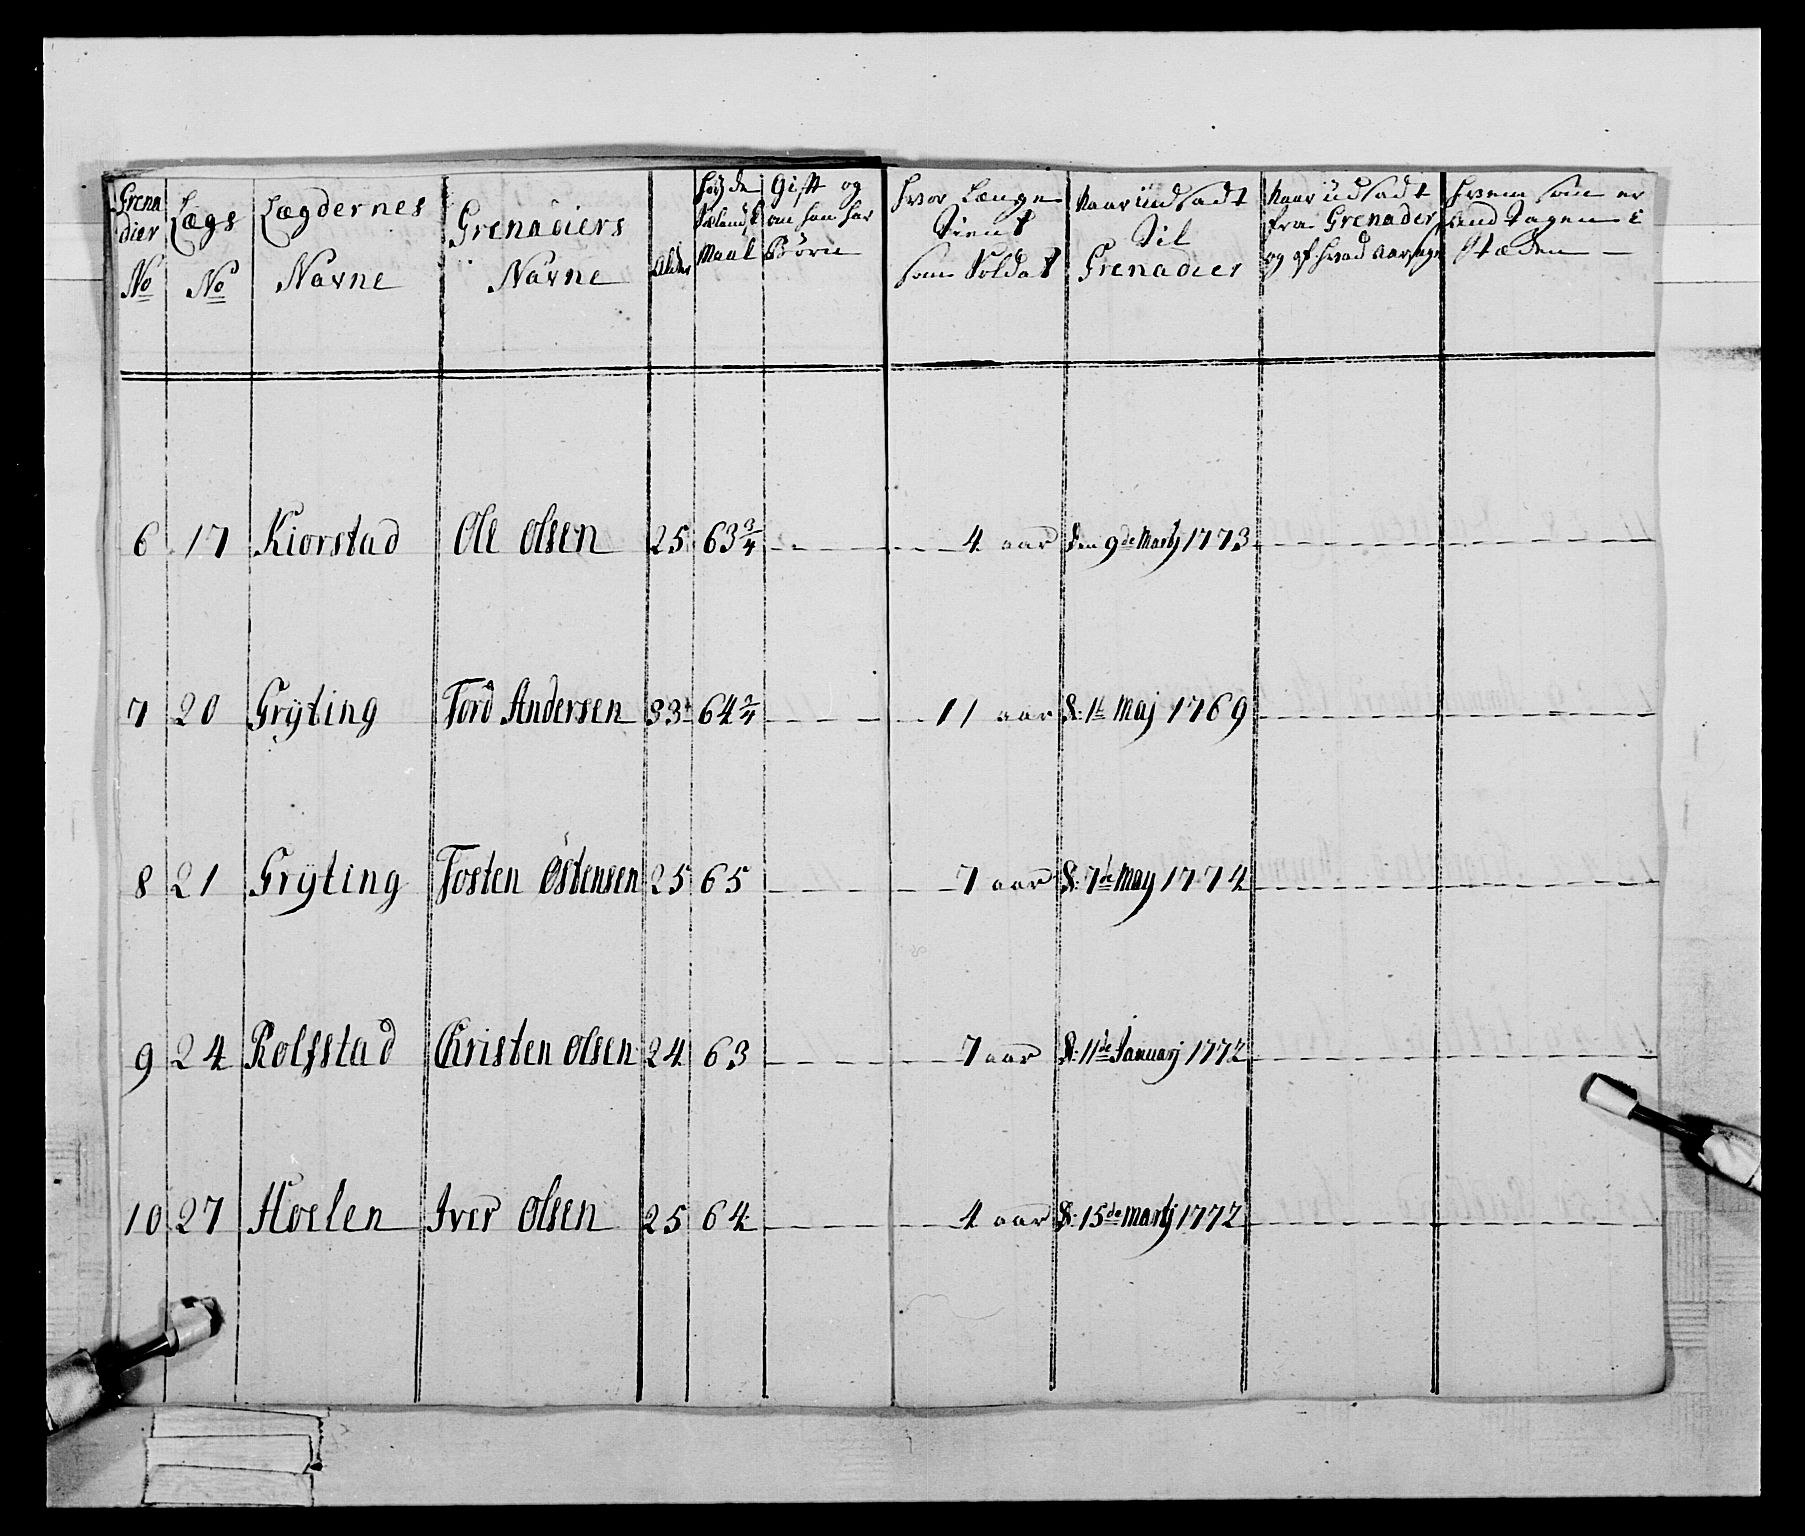 Grena dier No | Lægs No | Lægdernes Navne | Grenadiers Navne | Alder | Høyde Maal | Gift og om han har Børn | Hvor Længe Tient som Soldat | Naar üdsadt Til Grenadier | Naar üdsadt fra Grenader og af hvad Aarsage | Hvem som er andtagen i Stæden
6 | 17 | Kiorstad | Ole Olsen | 25 | 63 3/4 | 4 aar | den 9de Martj 1773
7 | 20 | Grÿting | Tord Andersen | 33 | 64 3/4 | 11 aar | d: 1t Maj 1769
8 | 21 | Grÿting | Tosten Östensen | 25 | 65 | 7 aar | d: 7de May 1774
9 | 24 | Rolfstad | Christen Olsen | 24 | 63 | 7 aar | d: 11de Januarj 1772
10 | 27 | Hoelen | Iver Olsen | 25 | 64 | 4 aar | d: 15de Martj 1772